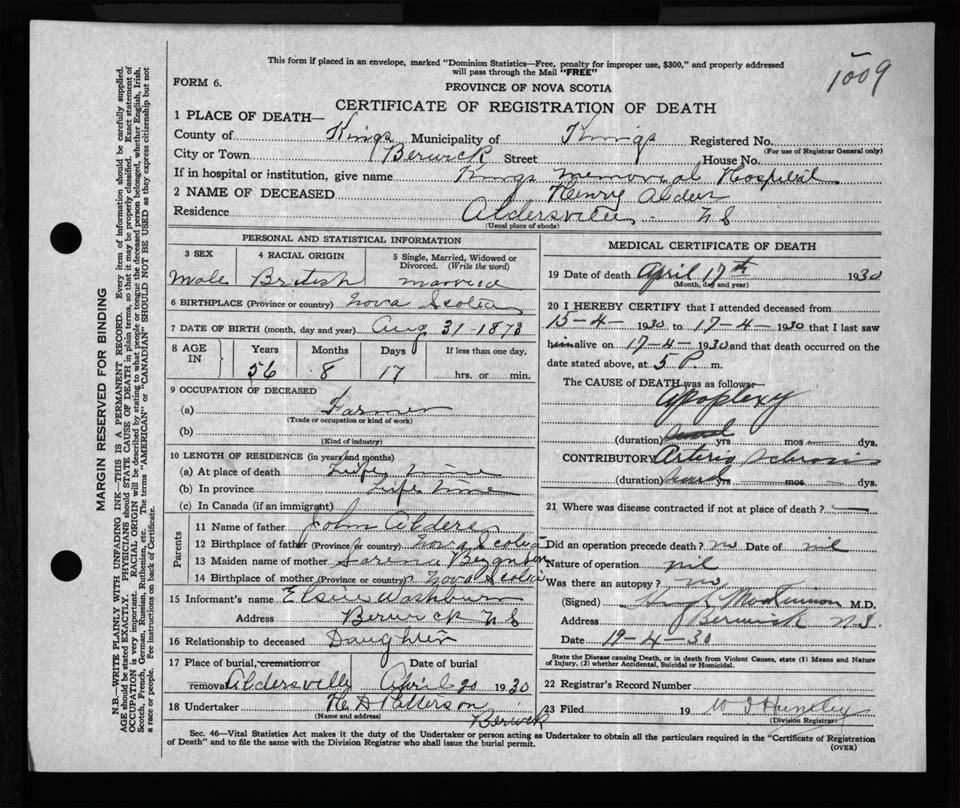 This form if placed in an envelope, marked "Dominion Statistics—Free, penalty for improper use, $300," and properly addressed
will pass through the Mail "FREE"
1009
FORM 6.
PROVINCE OF NOVA SCOTIA
CERTIFICATE OF REGISTRATION OF DEATH
1 PLACE OF DEATH—
County of Kings Municipality of Kings Registered No.
(For use of Registrar General only)
City or Town Berwick Street House No.
If in hospital or institution, give name Kings Memorial Hospital
2 NAME OF DECEASED Henry Alder
Residence Aldersville N S
(Usual place of abode)
PERSONAL AND STATISTICAL INFORMATION
3 SEX 4 RACIAL ORIGIN 5 Single, Married, Widowed or
Divorced. (Write the word)
Male British married
6 BIRTHPLACE (Province or country) Nova Scotia
7 DATE OF BIRTH (month, day and year) Aug 31-1873
8 AGE IN Years Months Days If less than one day.
56 8 17 hrs. or min.
9 OCCUPATION OF DECEASED
(a) Farmer
(Trade or occupation or kind of work)
(b)
(Kind of industry)
10 LENGTH OF RESIDENCE (in years and months)
(a) At place of death Life time
(b) In province Life time
(c) In Canada (if an immigrant)
Parents
11 Name of father John Alders
12 Birthplace of father (Province or country) Nova Scotia
13 Maiden name of mother
14 Birthplace of mother (Province or country) Nova Scotia
15 Informant's name Elsie Washburn
Address Berwick N S
16 Relationship to deceased Daughter
17 Place of burial, cremation or Date of burial
removal Aldersville April 20 1930
18 Undertaker Patterson
(Name and address) Berwick
MEDICAL CERTIFICATE OF DEATH
19 Date of death April 17th 1930
(Month, day and year)
20 I HEREBY CERTIFY that I attended deceased from
15-4- 1930 to 17-4- 1930 that I last saw
him alive on 17-4- 1930 and that death occurred on the
date stated above, at 5 P. m.
The CAUSE of DEATH was as follows:
Apoplexy
(duration) yrs mos dys.
CONTRIBUTORY Arterio Sclerosis
(duration) yrs mos dys.
21 Where was disease contracted if not at place of death? —
Did an operation precede death? no Date of nil
Nature of operation nil
Was there an autopsy? no
(Signed) Hugh McKinnon M.D.
Address Berwick N.S.
Date 19-4-30
State the Disease causing Death, or in death from Violent Causes, state (1) Means and Nature
of Injury, (2) whether Accidental, Suicidal or Homicidal.
22 Registrar's Record Number
23 Filed 19 Huntley
(Division Registrar)
Sec. 46—Vital Statistics Act makes it the duty of the Undertaker or person acting as Undertaker to obtain all the particulars required in the "Certificate of Registration
of Death" and to file the same with the Division Registrar who shall issue the burial permit.
(OVER)
MARGIN RESERVED FOR BINDING
N.B.—WRITE PLAINLY WITH UNFADING INK—THIS IS A PERMANENT RECORD. Every item of information should be carefully supplied.
AGE should be stated EXACTLY. PHYSICIANS should STATE CAUSE OF DEATH in plain terms, so that it may be properly classified. Exact statement of
OCCUPATION is very important. RACIAL ORIGIN will be described by stating to what people or tongue the deceased person belonged, whether English, Irish,
Scotch, French, German, Russian, Ruthenian, etc. The terms "AMERICAN" or "CANADIAN" SHOULD NOT BE USED as they express citizenship but not
a race or people. See instructions on back of Certificate.